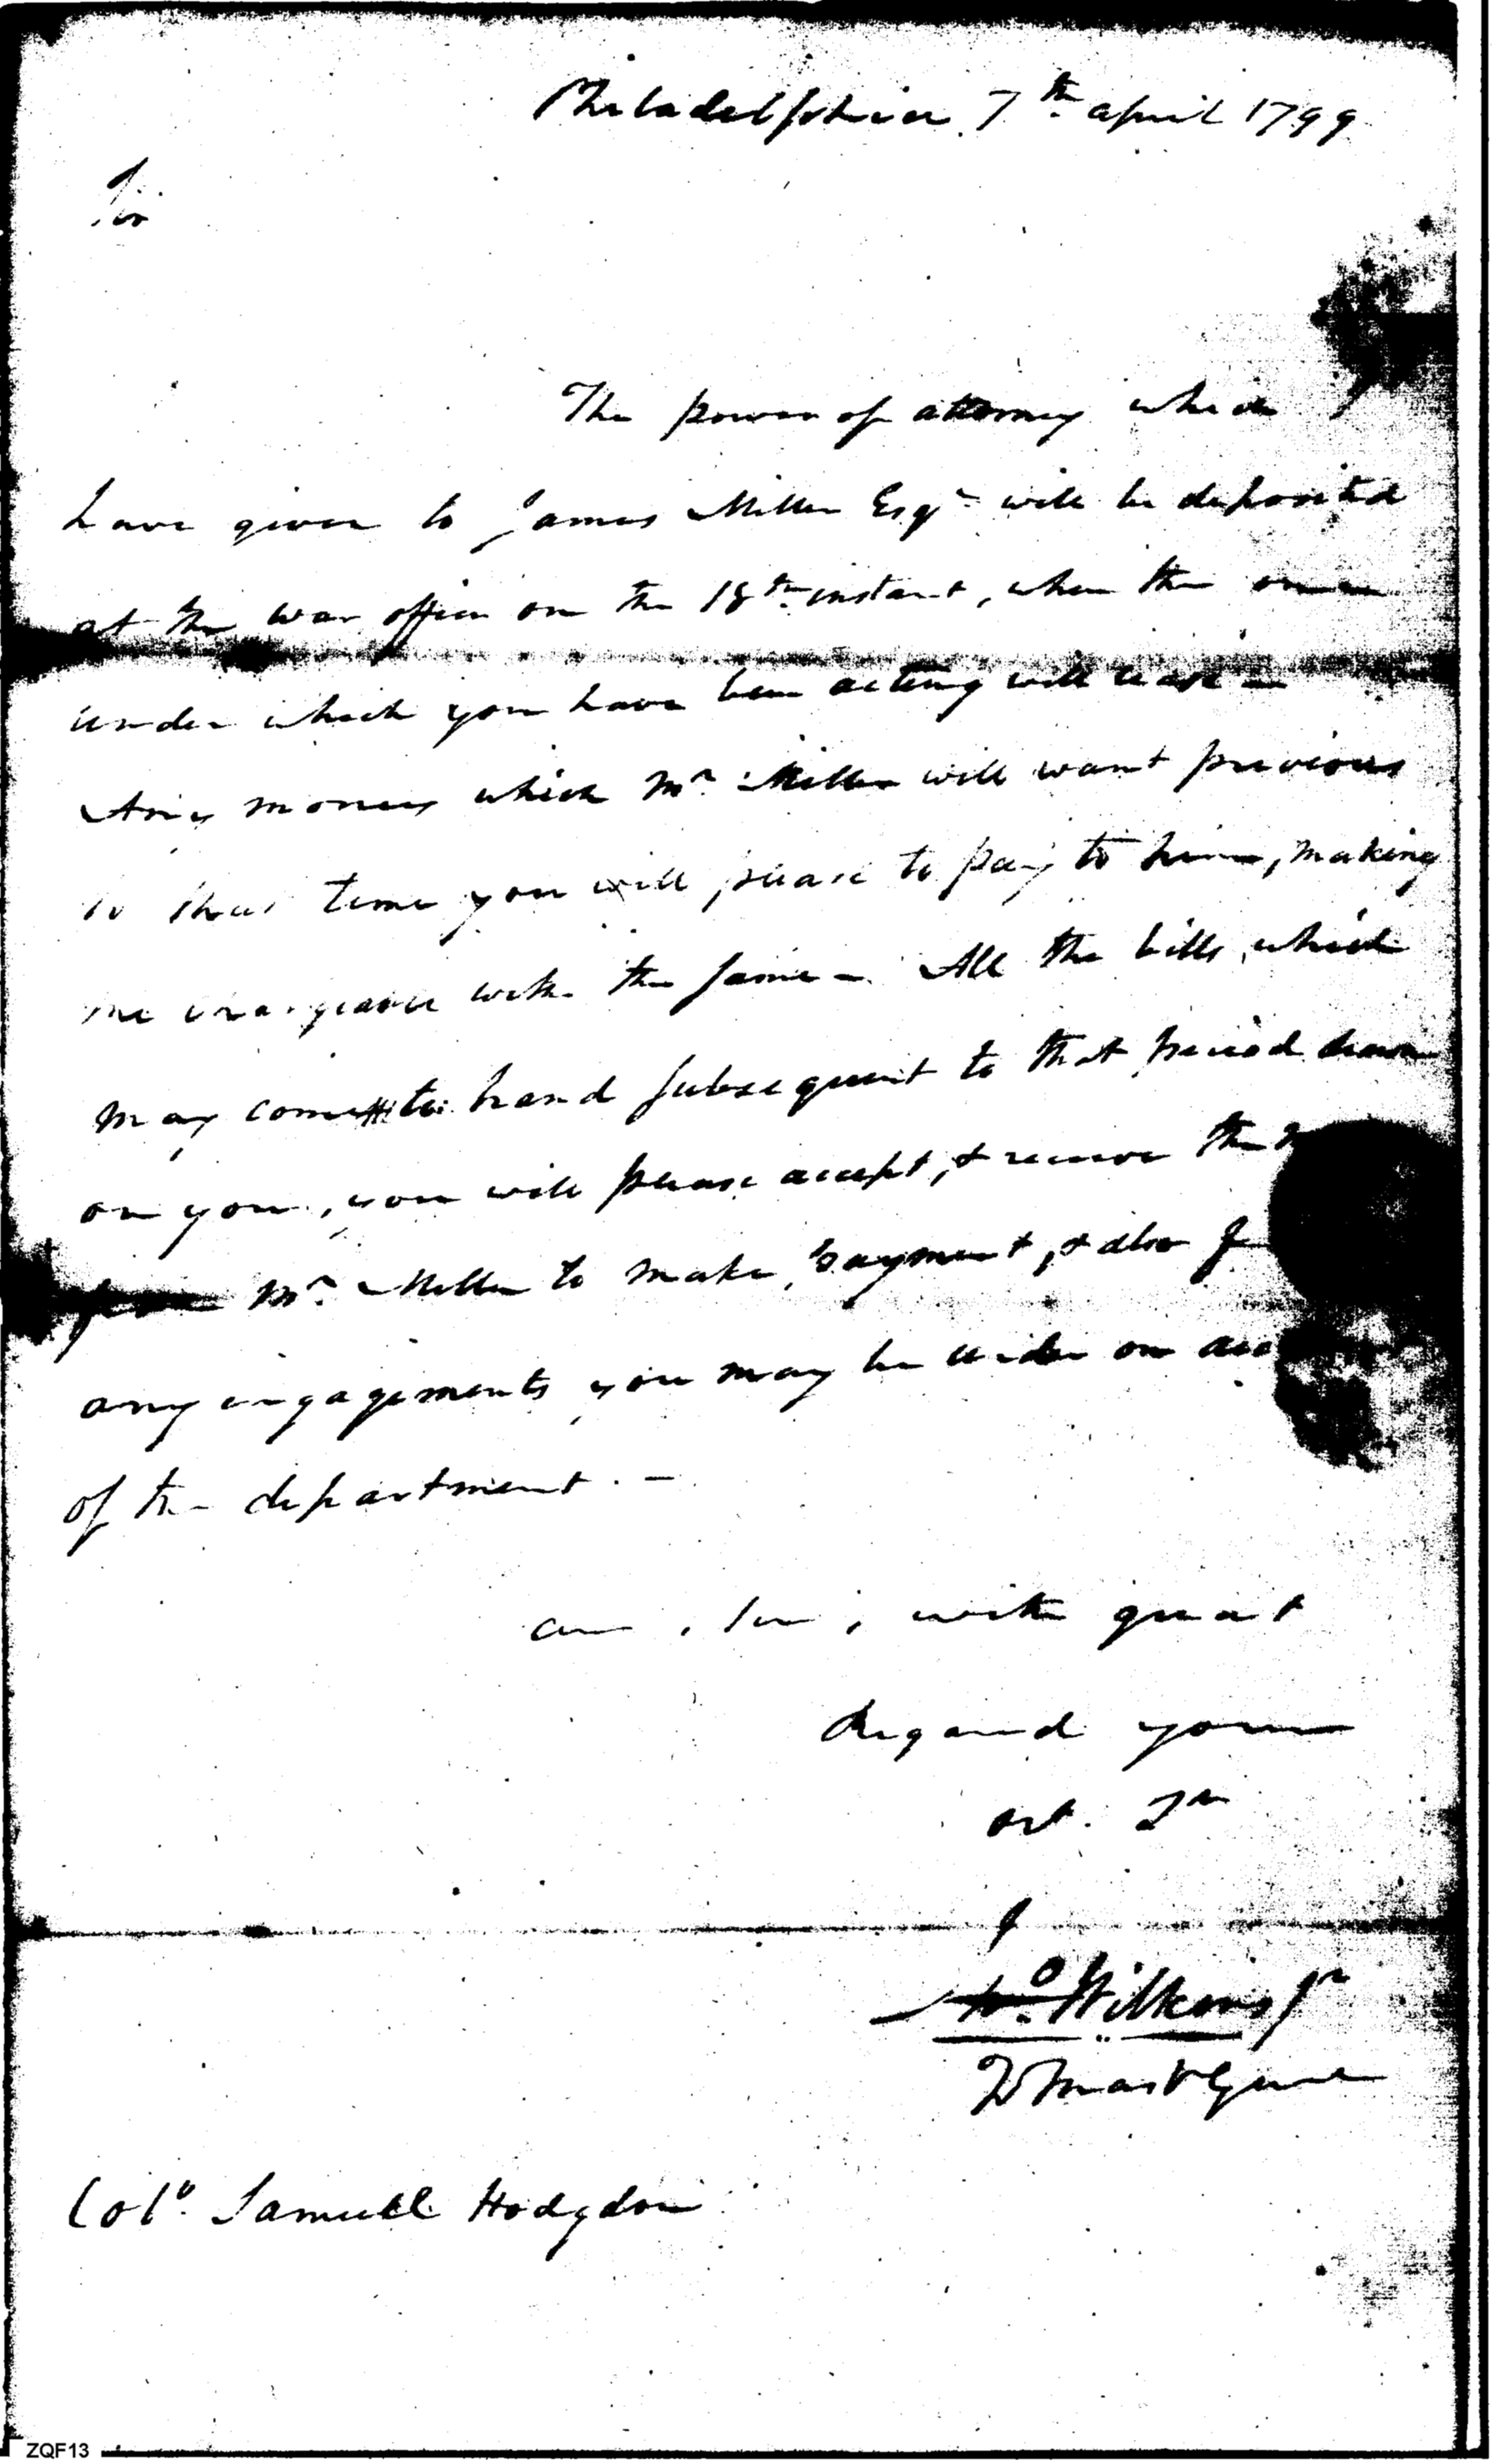 Philadelphia 7th april 1799
Sir
The power of attorney which I
have given to James Miller Esqr will be deposited
at the war office on the 18th instant, when the one
under which you have been acting will cease –
Any money which Mr Miller will want previous
to that time you will please to pay to him, making
me chargeable with the same – All the bills which
may come to hand subsequent to that period drawn
on you, you will please accept, & receive the
from Mr Miller to make payment, & also
any engagements you may be under on
of the department. –
am, Sir, with great
Regard your
obt. St
Jno Wilkins Jr
QrMastrGenl
Colo. Samuel Hodgdon
ZQF13